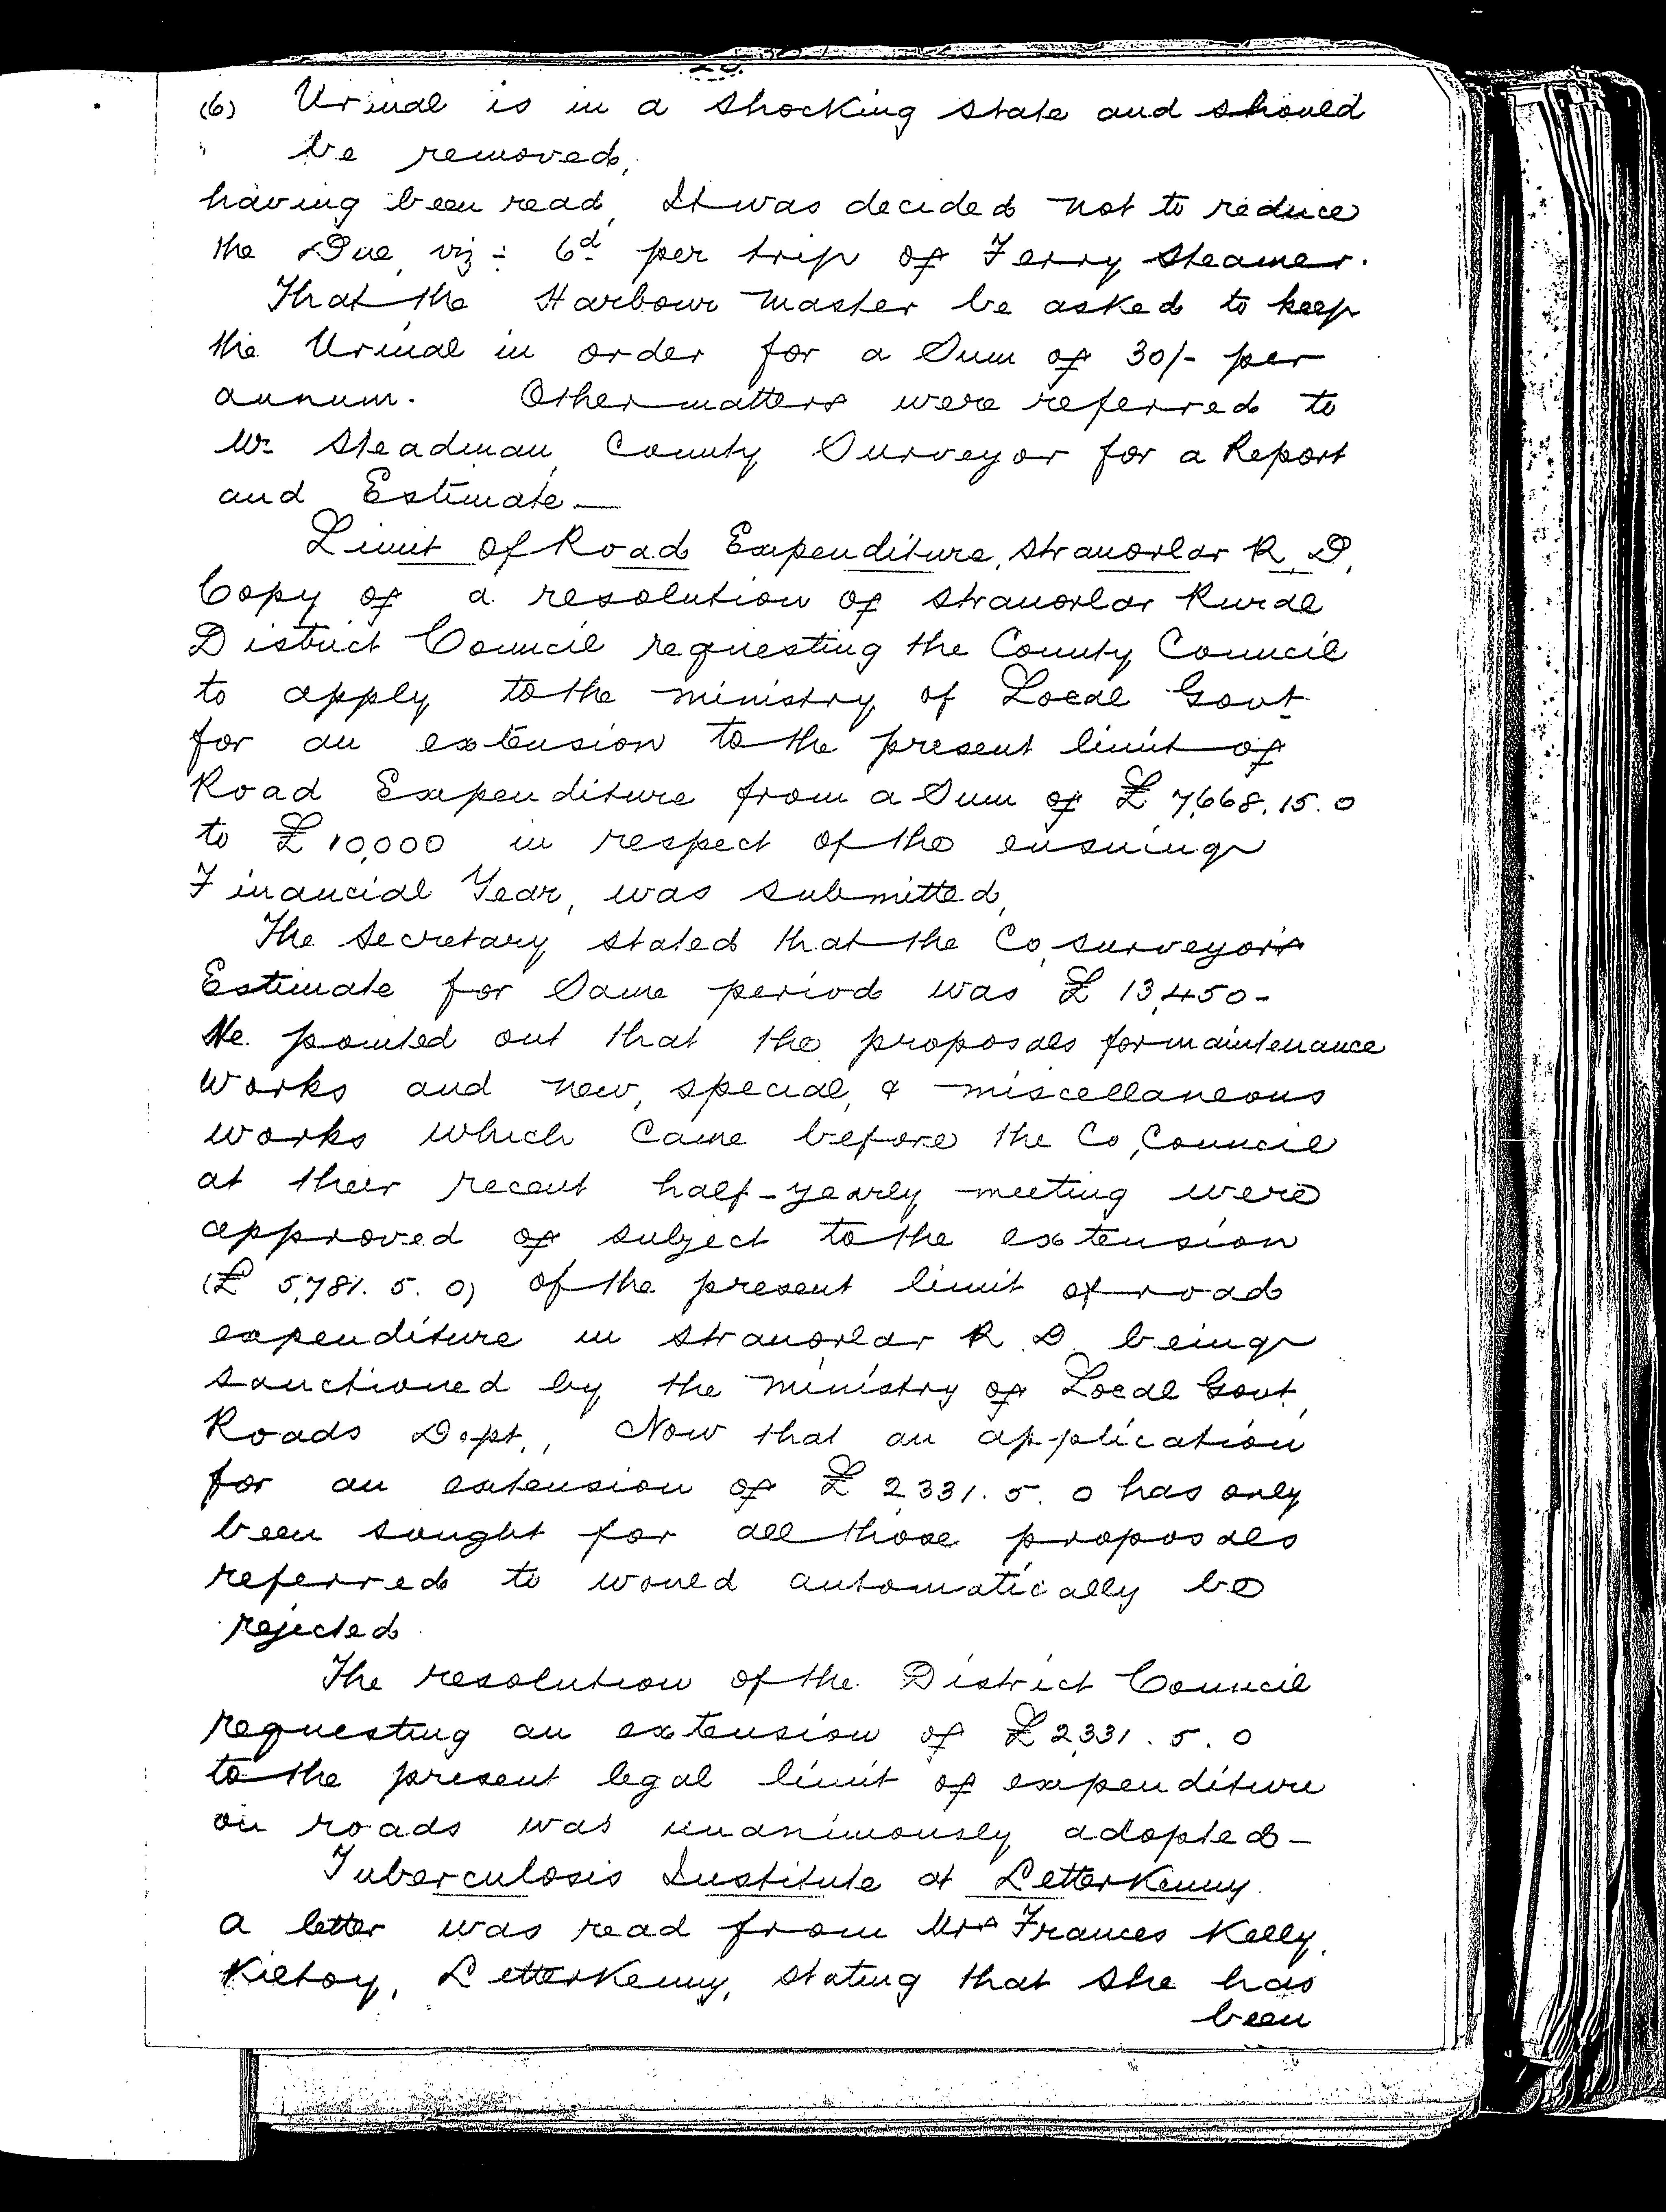 (6) Urinal is in a shocking state and should
be removed,
having been read, It was decided not to reduce
the Due, viz:- 6d per trip of Ferry Steamer.
That the Harbour Master be asked to keep
the Urinal in order for a Sum of 30/- per
annum. Other matters were referred to
Mr Steadman, County Surveyor for a Report
and Estimate —
Limit of Road Expenditure, Stranorlar R. D.
Copy of a resolution of Stranorlar Rural
District Council requesting the County Council
to apply to the ministry of Local Govt
for an extension to the present limit of
Road Expenditure from a Sum of £7,668.15.0
to £10,000 in respect of the ensuing
Financial Year, was submitted,
The Secretary stated that the Co, surveyor's
Estimate for Same period was £13,450-
He pointed out that the proposals for maintenance
works and new, special, & miscellaneous
works which came before the Co, Council
at their recent half-yearly meeting were
approved of subject to the extension
(£ 5,781. 5. 0) of the present limit of road
expenditure in Stranorlar R. D. being
sanctioned by the Ministry of Local Govt,
Roads Dept., Now that an application
for an extension of £ 2,331. 5. 0 has only
been sought for all those proposals
referred to would automatically be
rejected.
The resolution of the District Council
requesting an extension of £2,331. 5. 0
to the present legal limit of expenditure
on roads was unanimously adopted -
Tuberculosis Institute at Letterkenny.
A letter was read from Mrs Frances Kelly,
Kiltoy, Letterkenny, stating that she has
been